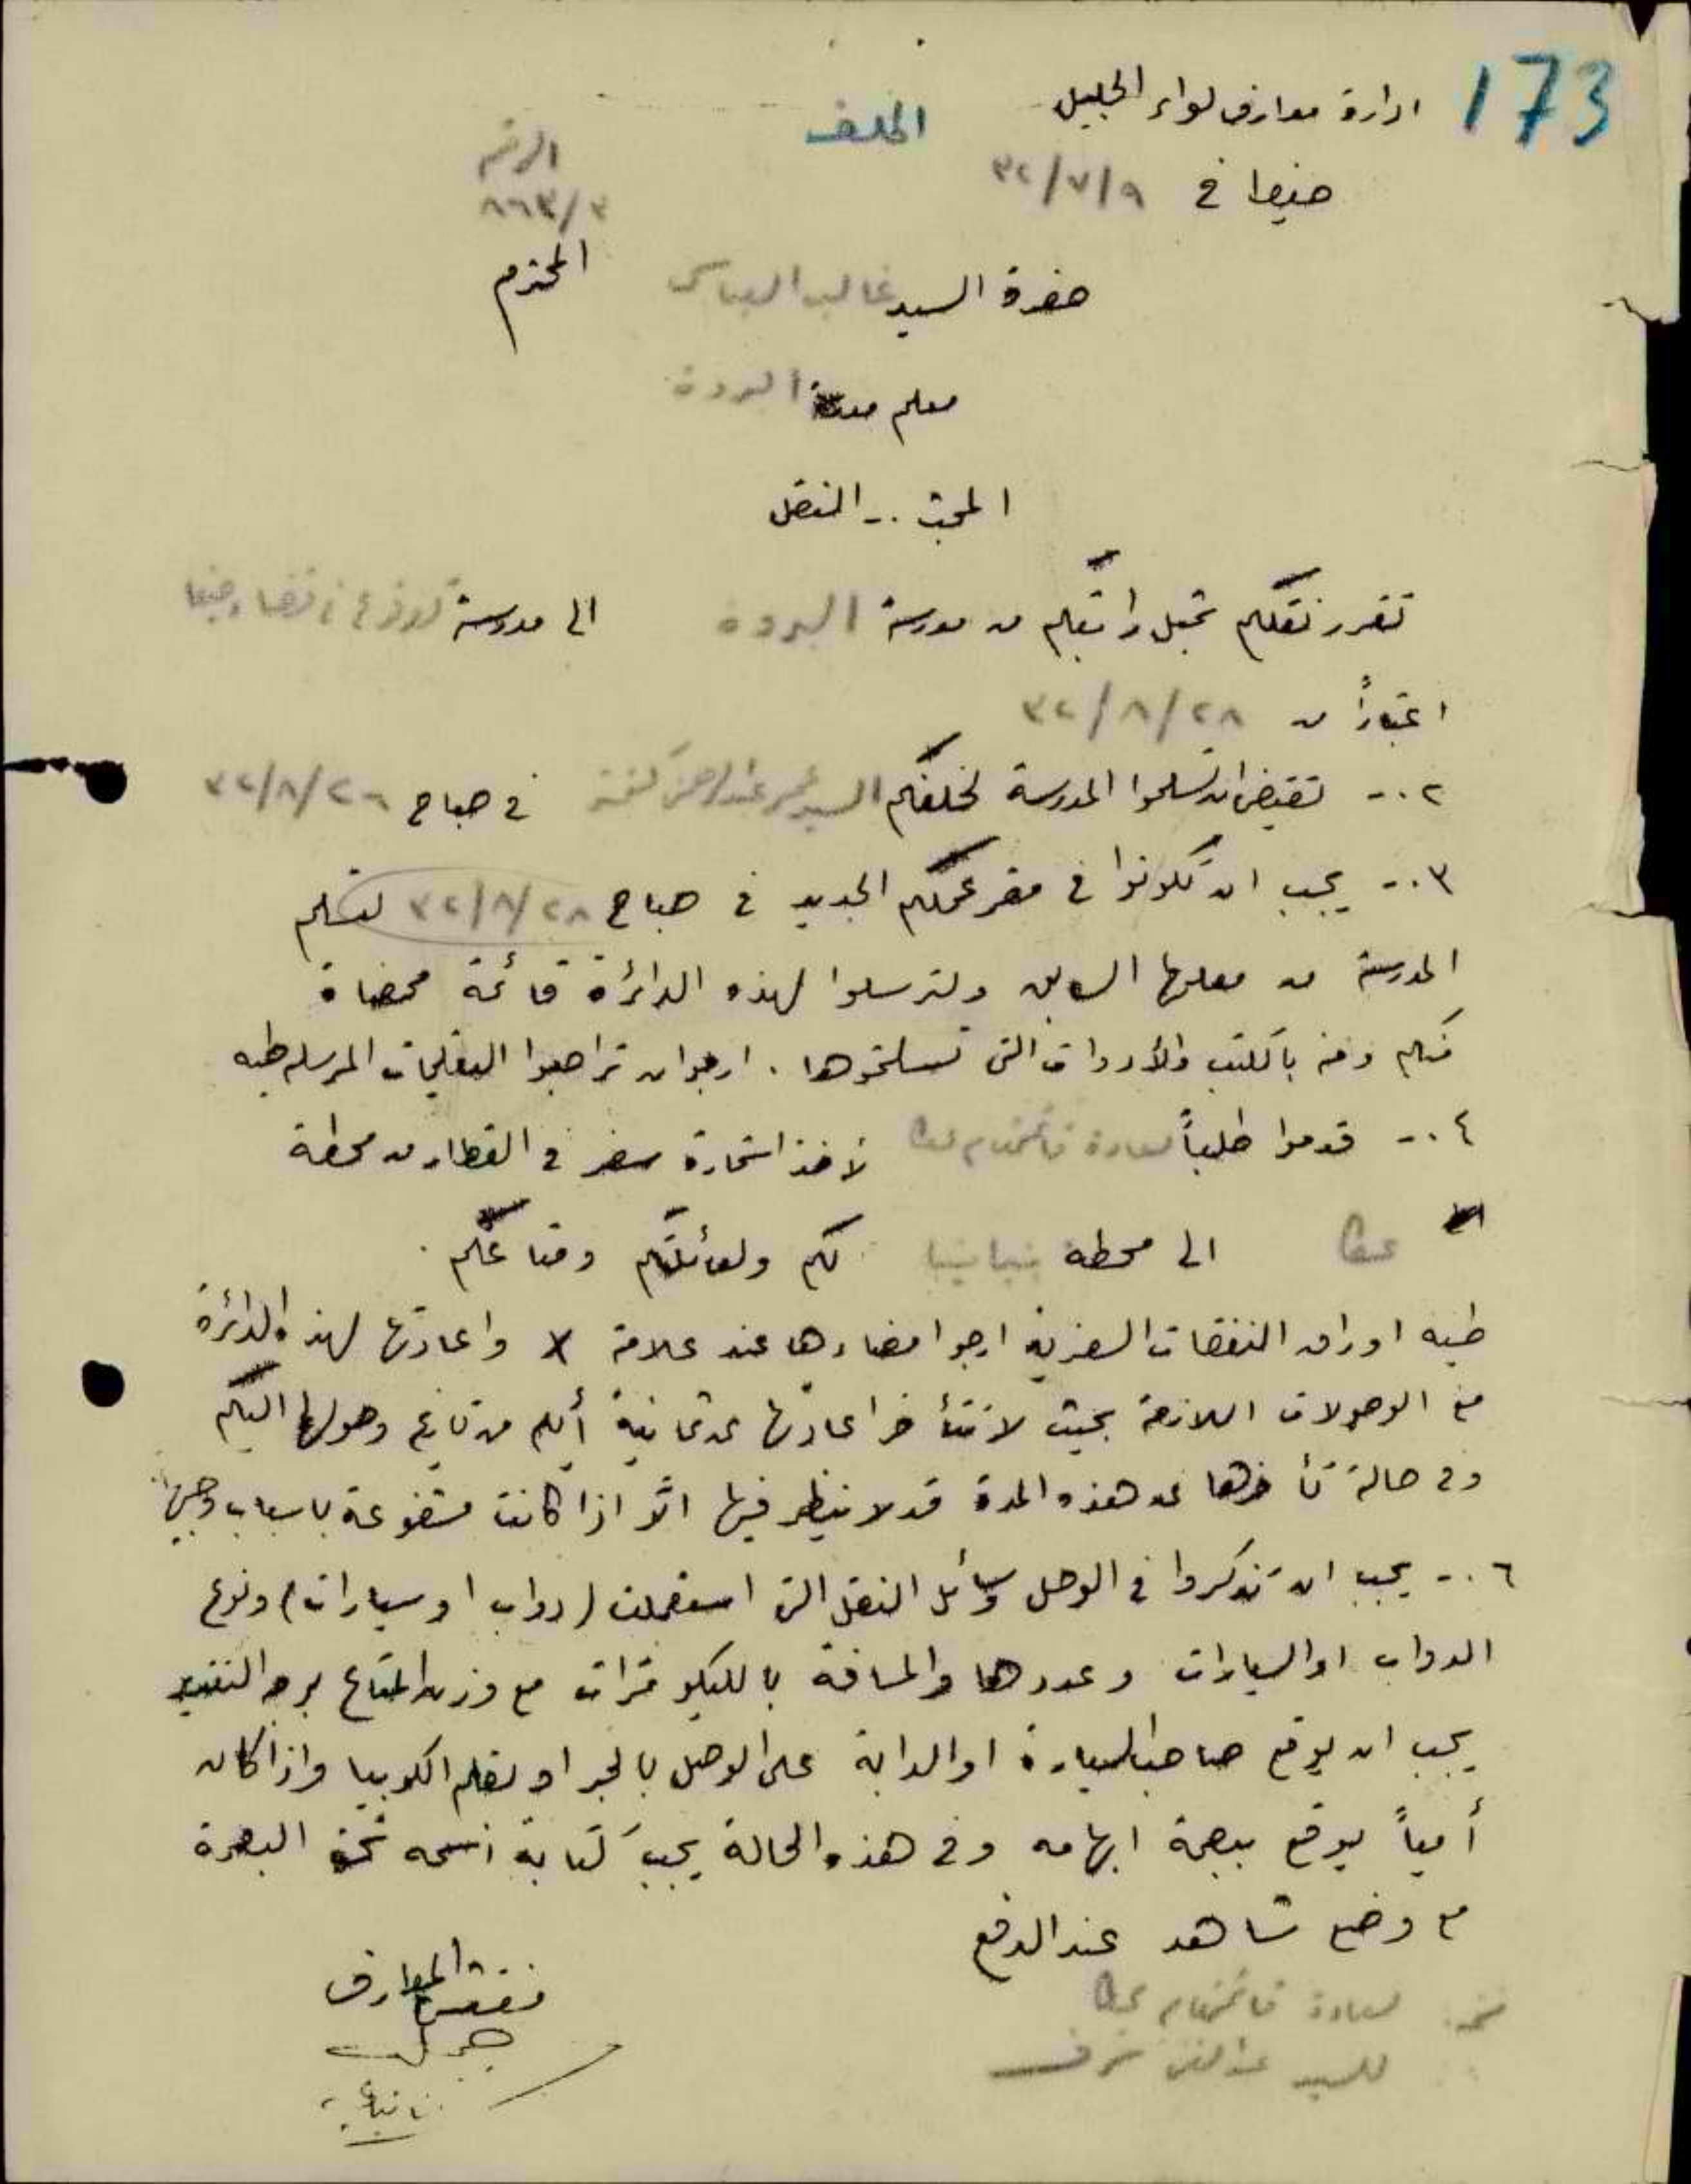 173
ادارة معارف لواء الجليل
الملف
الرقم
٨٦٣/٣
حيفا في ٣٢/٧/٩
حضرة السيد غالب العباسي المحترم
معلم مدرسة البروة
المبحث -. النقل
تقرر نقلكم بمثل راتبكم من مدرسة البروة الى مدرسة قضاء حيفا
اعتباراً من ٣٢/٨/٢٨
٢ .- تقتضي ان تسلموا المدرسة لخلفكم السيد في صباح ٣٢/٨/٢٦
٣ .- يجب ان تكونوا في مقر عملكم الجديد في صباح ٣٢/٨/٢٨ لتسلم
المدرسة من معلمها السابق ولترسلوا لهذه الدائرة قائمة ممضاة
منكم ومنه بالكتب والأدوات التي تسلمتموها . ارجو ان تراجعوا التعليمات المرسله طيه
٤ .- قدموا طلباً لسعادة قائمقام عكا لأخذ استمارة سفر في القطار من محطة
عكا الى محطه بنيامينا لكم ولعائلتكم ومتاعكم .
طيه اوراق النفقات السفرية ارجو امضاءها عند علامة x واعادتها لهذه الدائرة
مع الوصولات اللازمة بحيث لا تتأخر اعادتها عن ثمانية أيام من تاريخ وصولها اليكم
وفي حالة تأخرها عن هذه المدة قد لا ينظر فيها الا اذا كانت مشفوعة باسباب وجيهة
٦ .- يجب ان تذكروا في الوصل وسائل النقل التي استعملت (دواب او سيارات) ونوع
الدواب او السيارات وعددها والمسافة بالكيلو مترات مع وزن المتاع بوجه التقييد
يجب ان يوقع صاحب السيارة او الدابة على الوصل بالحبر او بقلم الكوبيا واذا كان
أمياً يوقع ببصمة ابهامه وفي هذه الحالة يجب كتابة اسمه تحت البصمة
مع وضع شاهد عند الدفع
مفتش المعارف
نسخه : لسعادة قائمقام عكا
للسيد
بالنيابة